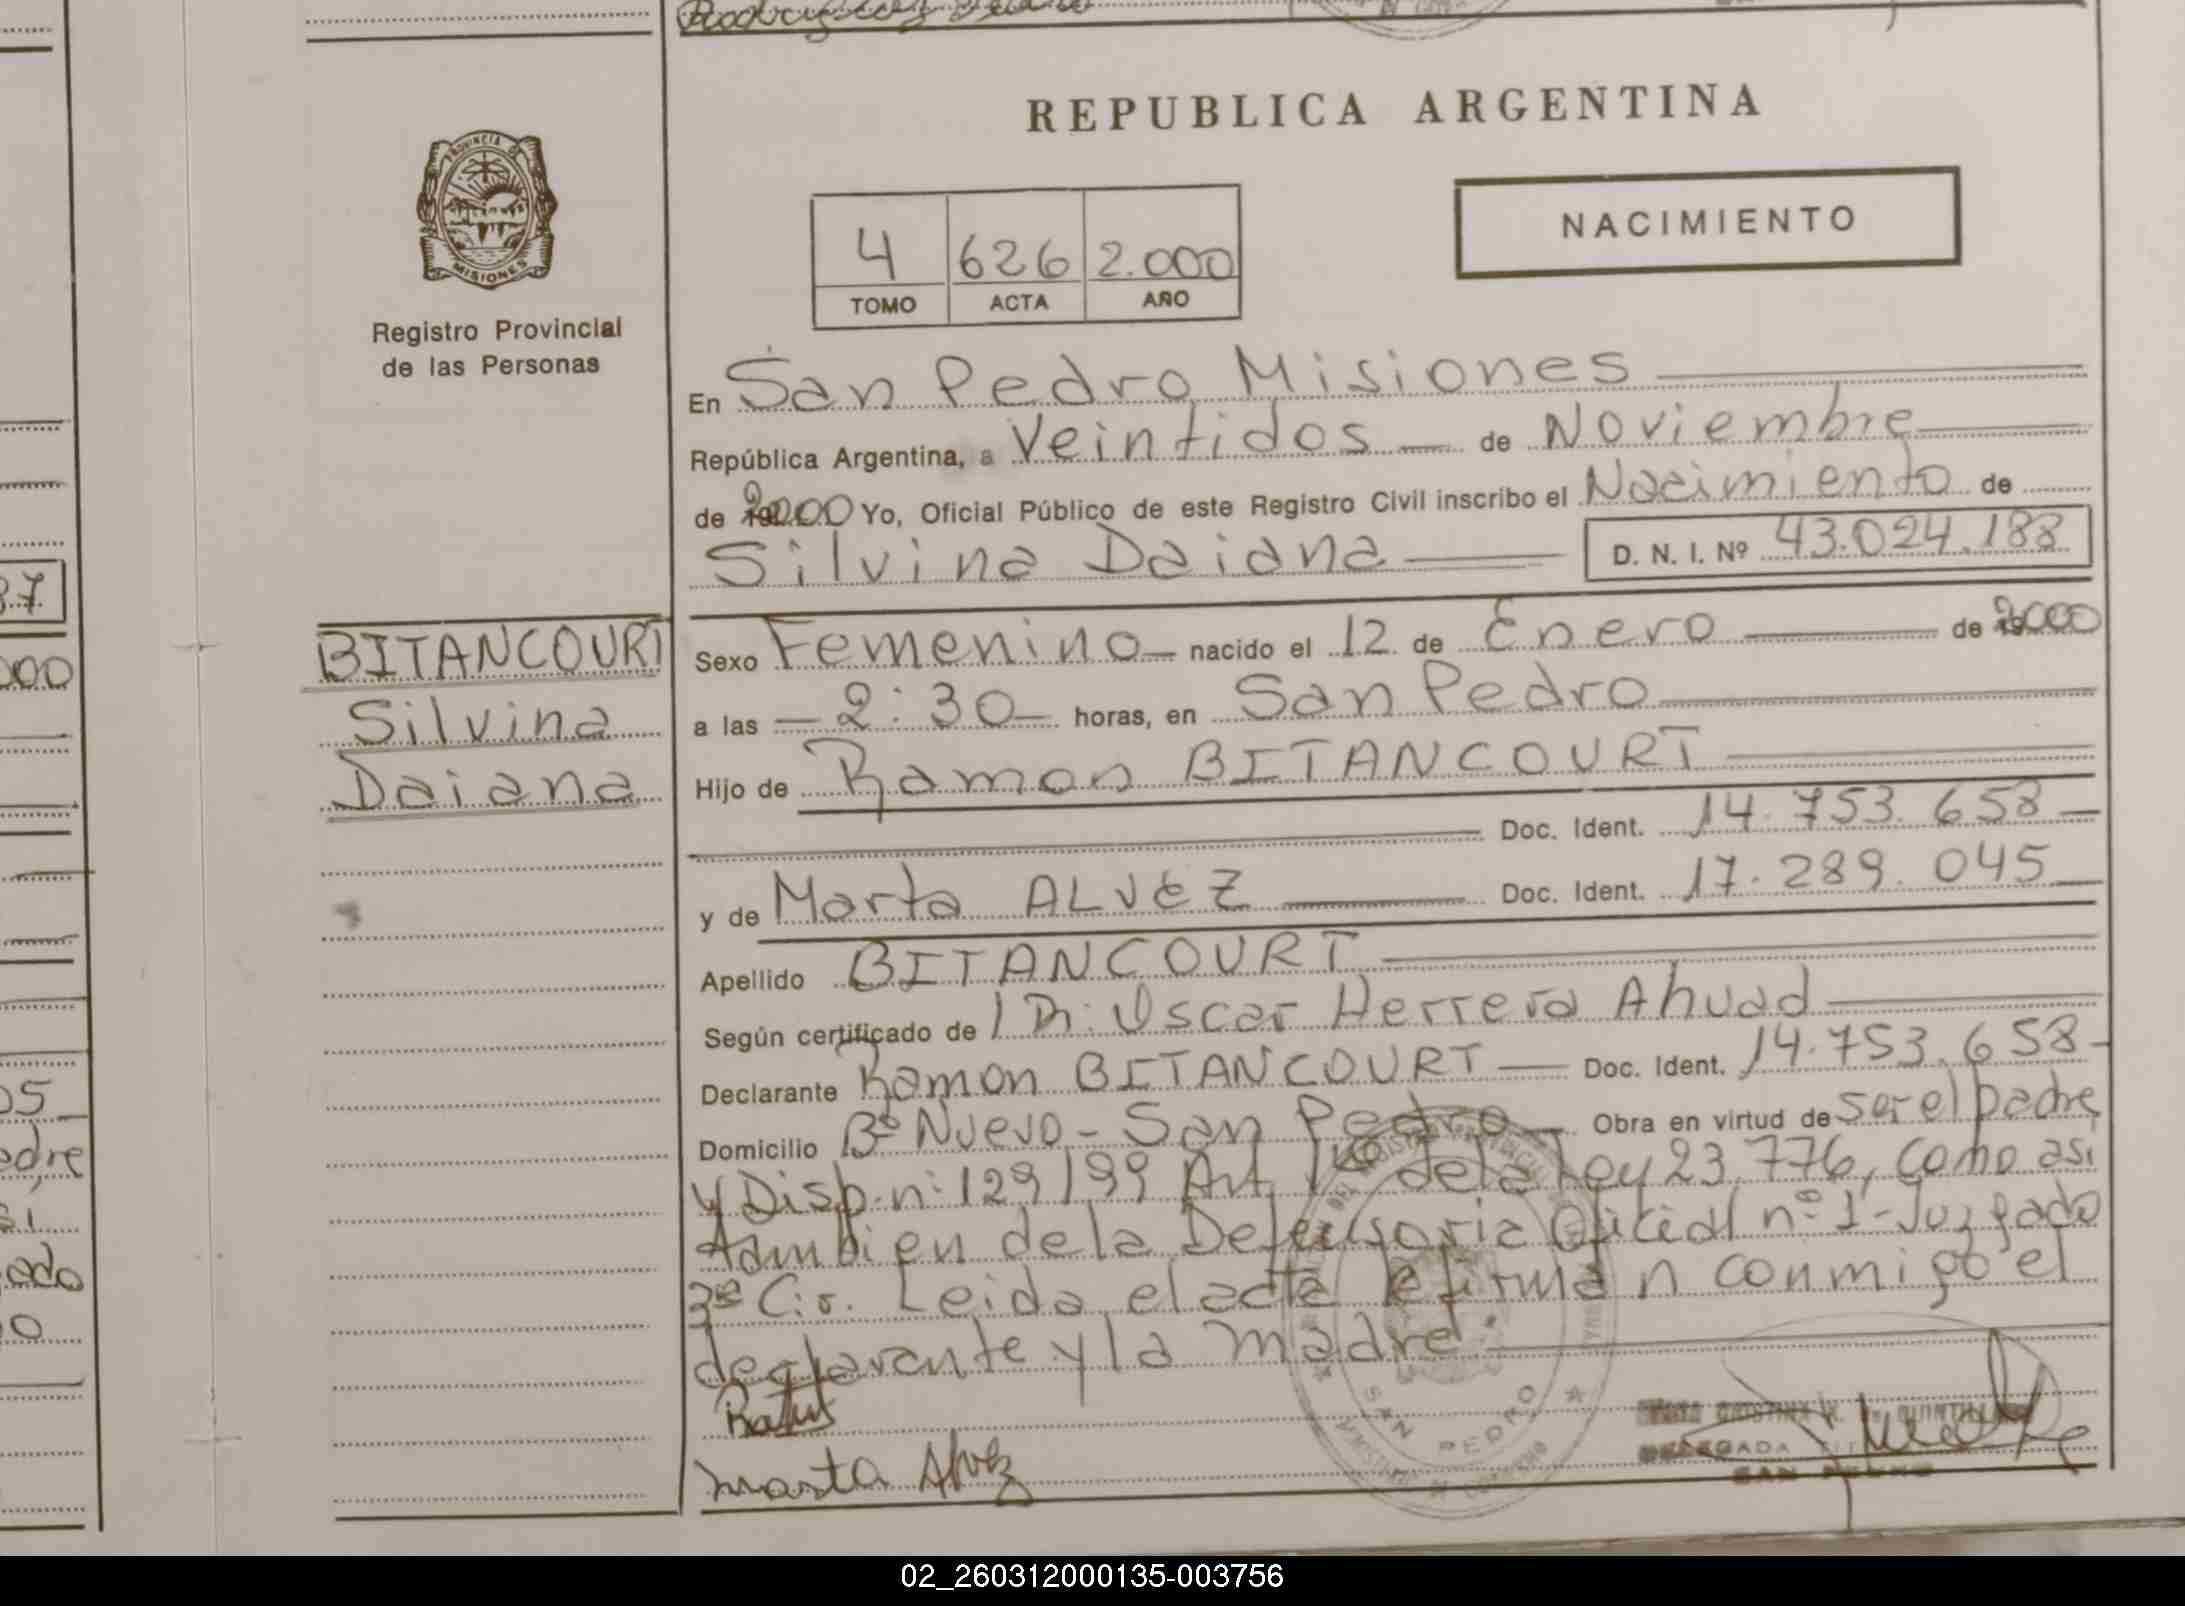 REPUBLICA ARGENTINA
PROVINCIA DE
MISIONES
Registro Provincial
de las Personas
NACIMIENTO
4 626 2.000
TOMO ACTA AÑO
En San Pedro Misiones
República Argentina, a Veintidos de Noviembre
de 2000 Yo, Oficial Público de este Registro Civil inscribo el Nacimiento de
Silvina Daiana D. N. I. Nº 43.024.188
BITANCOURT
Silvina
Daiana
Sexo Femenino nacido el 12 de Enero de 2000
a las 2:30 horas, en San Pedro
Hijo de Ramon BITANCOURT
Doc. Ident. 14.753.658
y de Marta ALVEZ Doc. Ident. 17.289.045
Apellido BITANCOURT
Según certificado de Dr. Oscar Herrera Ahuad
Declarante Ramon BITANCOURT Doc. Ident. 14.753.658
Domicilio Bº Nuevo - San Pedro Obra en virtud de ser el padre
y Disp. nº 129/99 Art. de la Ley 23.776, como asi
tambien de la Defensoria Oficial nº 1 - Juzgado
3ª Cir. Leida el acta la firman conmigo el
declarante y la madre
Marta Alvez
SAN PEDRO
DELEGADA
SAN PEDRO
37
000
05
edre
si
ado
o
02_260312000135-003756